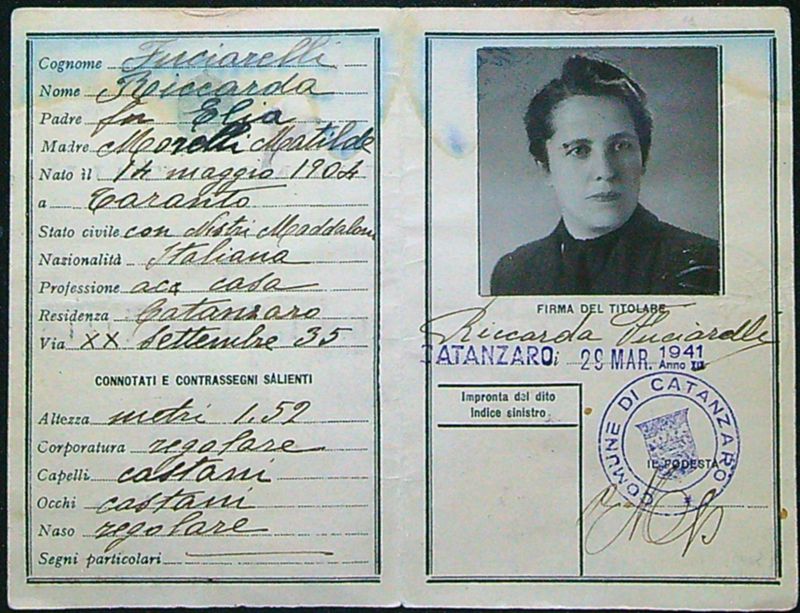 Cognome Fuciarelli
Nome Riccarda
Padre fu Elia
Madre Morelli Matilde
Nato il 14 maggio 1904
a Taranto
Stato civile con Nistri Maddalon
Nazionalità Italiana
Professione acc casa
Residenza Catanzaro
Via XX Settembre 35
CONNOTATI E CONTRASSEGNI SALIENTI
Altezza metri 1.52
Corporatura regolare
Capelli castani
Occhi castani
Naso regolare
Segni particolari
FIRMA DEL TITOLARE
Riccarda Fuciarelli
CATANZARO, 29 MAR. 1941
Anno
Impronta del dito
Indice sinistro
COMUNE DI CATANZARO
IL PODESTÀ